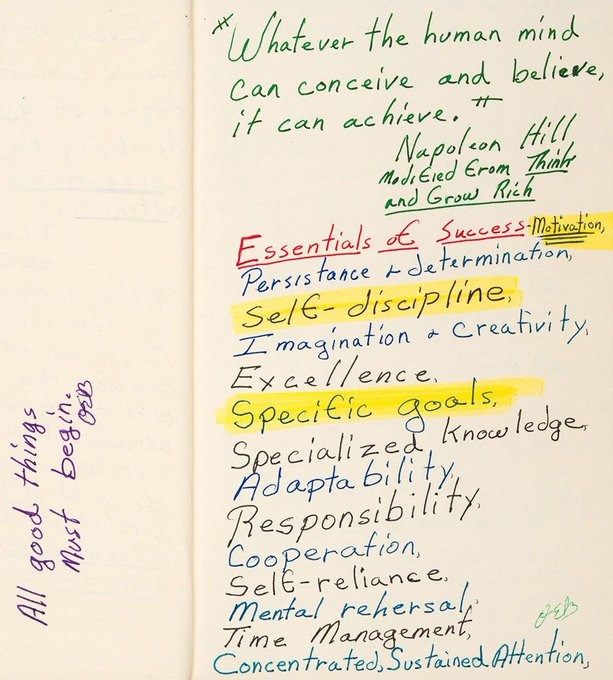 "Whatever the human mind
can conceive and believe,
it can achieve."
Napoleon Hill
Modified From Think
and Grow Rich
Essentials of Success-Motivation,
Persistance & determination,
Self-discipline,
Imagination & Creativity,
Excellence,
Specific goals,
Specialized Knowledge,
Adaptability,
Responsibility,
Cooperation,
Self-reliance,
Mental rehersal,
Time Management,
Concentrated, Sustained Attention,
OEB
All good things
Must begin.
OEB